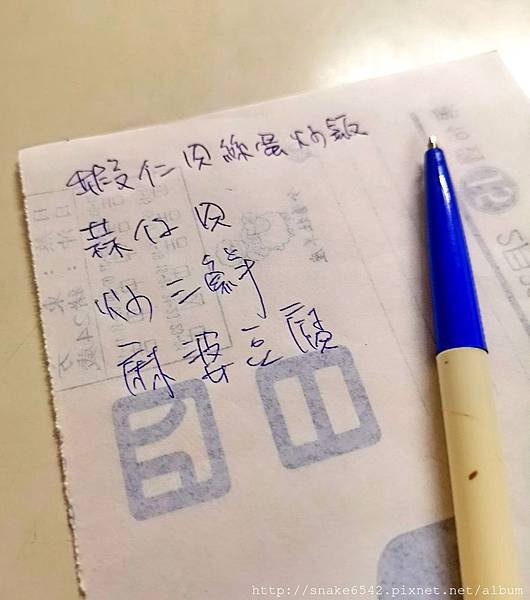 蝦仁貝絲蛋炒飯
蒜仔貝
炒三鮮
麻婆豆腐
http://snake6542.pixnet.net/album